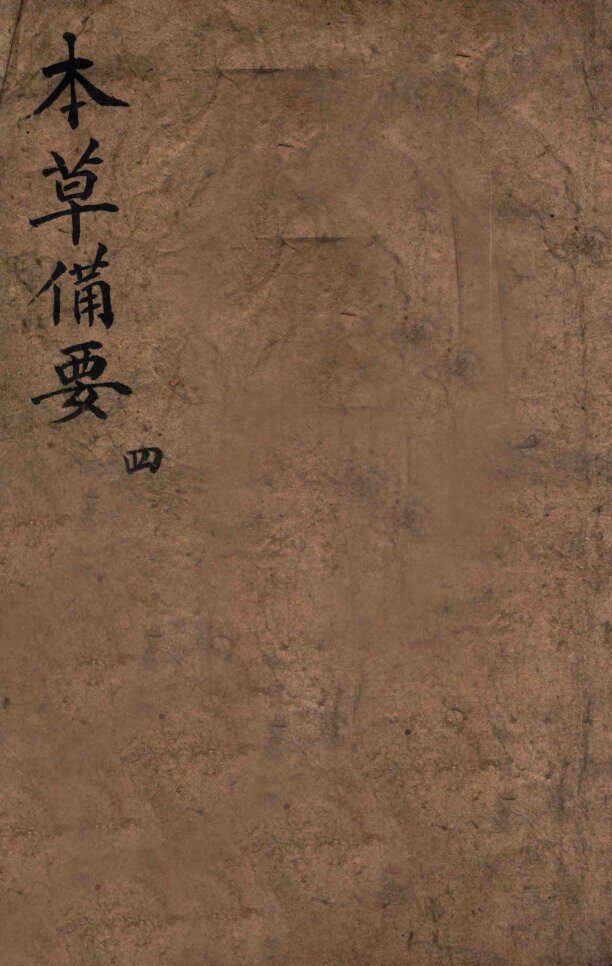 本草備要
四